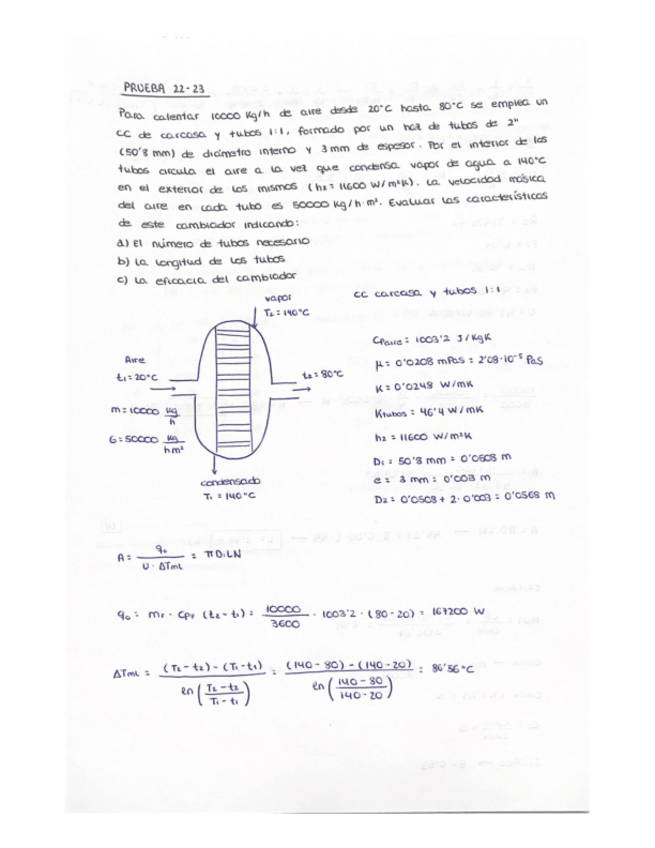 PRUEBA 22-23
Para calentar 10000 Kg/h de aire desde 20°C hasta 80°C se emplea un
CC de carcasa y tubos 1:1, formado por un haz de tubos de 2"
(50'8 mm) de diámetro interno y 3 mm de espesor. Por el interior de los
tubos circula el aire a la vez que condensa vapor de agua a 140°C
en el exterior de los mismos (h2 = 11600 W/m²K). La velocidad másica
del aire en cada tubo es 50000 Kg/h·m². Evaluar las características
de este cambiador indicando:
a) El número de tubos necesario
b) La longitud de los tubos
c) La eficacia del cambiador
vapor
T2 = 140°C
CC carcasa y tubos 1:1
Aire
t1 = 20°C
t2 = 80°C
m = 10000 kg/h
G = 50000 kg/hm²
condensado
T1 = 140°C
CpAire = 1003'2 J/KgK
μ = 0'0208 mPas = 2'08·10⁻⁵ Pas
K = 0'0248 W/mK
Ktubos = 46'4 W/mK
h2 = 11600 W/m²K
D1 = 50'8 mm = 0'0508 m
e = 3 mm = 0'003 m
D2 = 0'0508 + 2·0'003 = 0'0568 m
A = q0 / U·ΔTmL = πDiLN
q0 = mr · Cpr (t2 - t1) = 10000/3600 · 1003'2 · (80-20) = 167200 W
ΔTmL = (T2 - t2) - (T1 - t1) / ln (T2 - t2 / T1 - t1) = (140 - 80) - (140 - 20) / ln (140 - 80 / 140 - 20) = 86'56°C